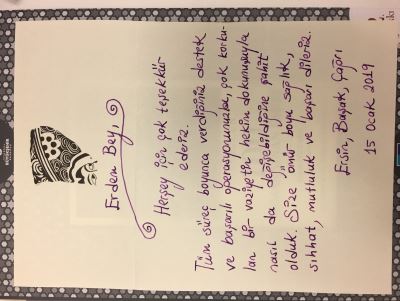 Erden Bey,
Herşey için çok teşekkür
ederiz
Tüm süreç boyunca verdiğiniz destek
ve başarılı operasyonunuzla, çok korku-
lan bir vaziyetin hekim dokunuşuyla
nasıl da değişebildiğine şahit
olduk. Size ömür boyu sağlık,
sıhhat, mutluluk ve başarı dileriz.
Ersin, Başak, Çağrı
15 Ocak 2019